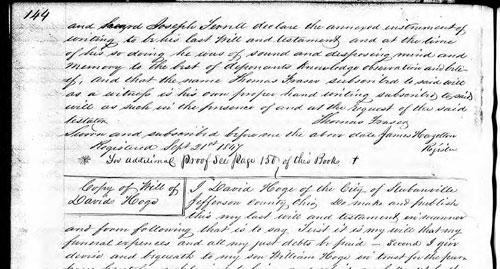 144
and heard Joseph Terrill declare the annexed instrument of
writing to be his last Will and testament and at the time
of his so doing he was of sound and desposing mind and
memory to the best of deponants knowledge observation and belie
ef, and that the same Thomas Fraser subscribed to said will
as a witness is his own proper hand writing subscribed to said
will as such in the presence of and at the request of the said
testator
Thomas Fraser
Sworn and subscribed before me the above date James
Registered Sept 21st 1847
Register
* For additional Proof See Page 150 of this Book +
Copy of Will of
Davids Hoge
I David Hoge of the City of Stubanville
Jefferson County Ohio Do make and publish
this my last will and testament in manner
and form following that is to say. First it is my will that my
funeral expences and all my just debts be paid — Second I give
devise and bequeath to my son William Hoge in trust for the